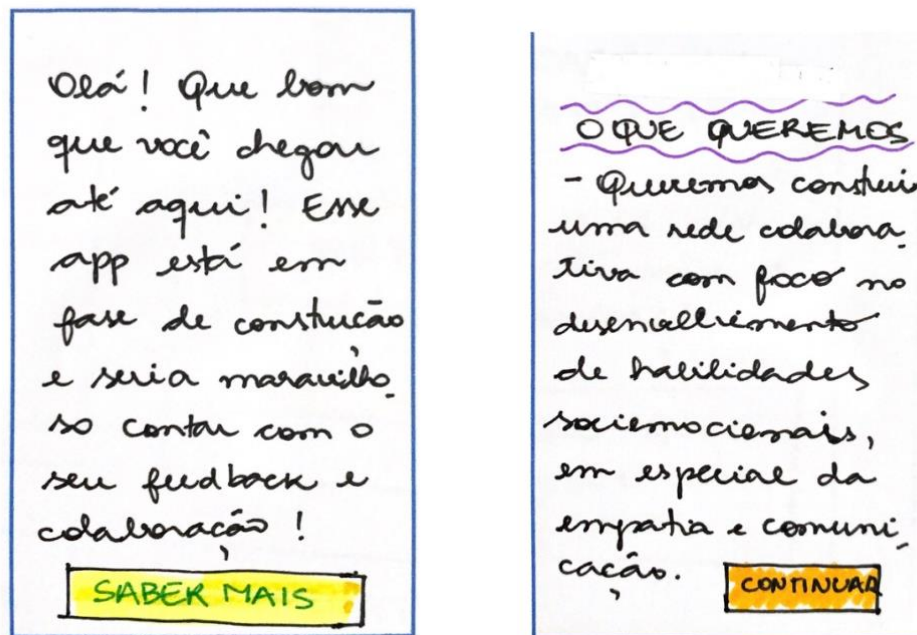 Olá! Que bom
que você chegou
até aqui! Esse
app está em
fase de construção
e seria maravilho
so contar com o
seu feedback e
colaboração!
SABER MAIS
O QUE QUEREMOS
- Queremos construir
uma rede colabora
tiva com foco no
desenvolvimento
de habilidades
sociemocionais,
em especial da
empatia e comuni
cação.
CONTINUAR